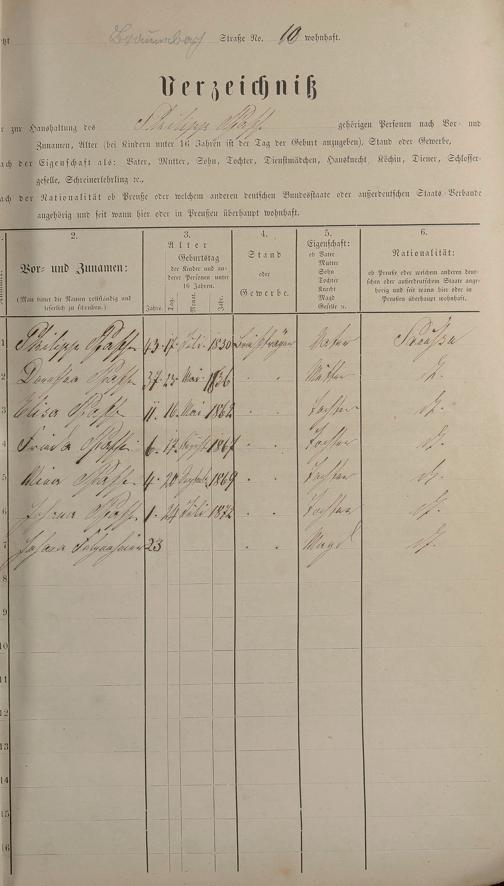 Straße No. 10 wohnhaft.
Verzeichniß
zur Haushaltung des Philipp gehörigen Personen nach Vor- und
Zunamen, Alter (bei Kindern unter 16 Jahren ist der Tag der Geburt anzugeben), Stand oder Gewerbe,
nach der Eigenschaft als: Vater, Mutter, Sohn, Tochter, Dienstmädchen, Hausknecht, Köchin, Diener, Schlosser-
geselle, Schreinerlehrling ꝛc.,
nach der Nationalität ob Preuße oder welchem anderen deutschen Bundesstaate oder außerdeutschen Staats-Verbande
angehörig und seit wann hier oder in Preußen überhaupt wohnhaft.
2. 3. 4. 5. 6.
Vor- und Zunamen:
(Man bittet die Namen vollständig und
leserlich zu schreiben.)
Alter
Geburtstag
der Kinder und an-
derer Personen unter
16 Jahren.
Jahre. Tag. Monat. Jahr.
Stand
oder
Gewerbe.
Eigenschaft:
ob Vater
Mutter
Sohn
Tochter
Knecht
Magd
Geselle ꝛc.
Nationalität:
ob Preuße oder welchem anderen deut-
schen oder außerdeutschen Staate ange-
hörig und seit wann hier oder in
Preußen überhaupt wohnhaft.
1 Philipp 43 17 Juli 1830 Briefträger Vater Preußen
2 37 23 Mai 1836 " " Mutter d.
3 Elisa 11 16 Mai 1862 " " Tochter d.
4 6 17 August 1867 " " Tochter d.
5 4 20 1869 " " Tochter d.
6 1 24 Juli 1872 " " Tochter d.
7 23 " " Magd d.
8
9
10
11
12
13
14
15
16